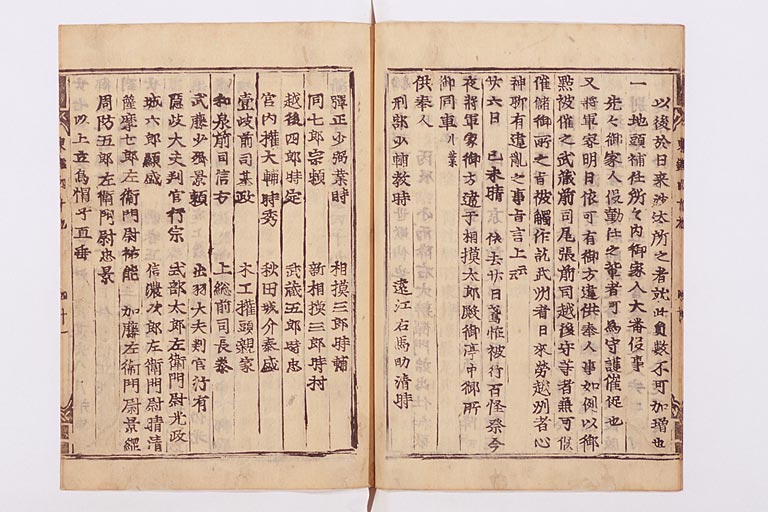 以後於日来沙汰所之者就此員数不可加増也
一地頭補任所々内御家人大番役事
先々御家人役勤仕之輩者可為守護催促也
又将軍家明日依可有御方違供奉人事如例以御
点被催之武蔵前司尾張前司越後守等者無可候
催儲御所之旨被触作武州者日来労越州者心
神聊有違乱之事旨言上云云
廿六日 己未晴 依去廿日鷺恠被行百怪祭今
夜将軍家御方違于相摸太郎殿御亭中御所
御同車
供奉人
刑部少輔教時 遠江右馬助清時
弾正少弼業時 相摸三郎時輔
同七郎宗頼 新相摸三郎時村
越後四郎時定 武蔵五郎時忠
宮内権大輔時秀 秋田城介泰盛
壹岐前司基政 木工権頭親家
和泉前司行方 上総前司長泰
武藤少弼景頼 出羽大夫判官行有
隠岐大夫判官行宗 式部太郎左衛門尉光政
城六郎顕盛 信濃次郎左衛門尉時清
薩摩七郎左衛門尉祐能 加藤左衛門尉景經
周防五郎左衛門尉忠景
以上立烏帽子直垂